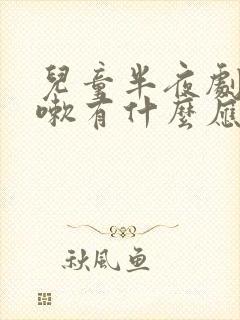 兒童半夜劇
嗽有什麼應
秋風魚